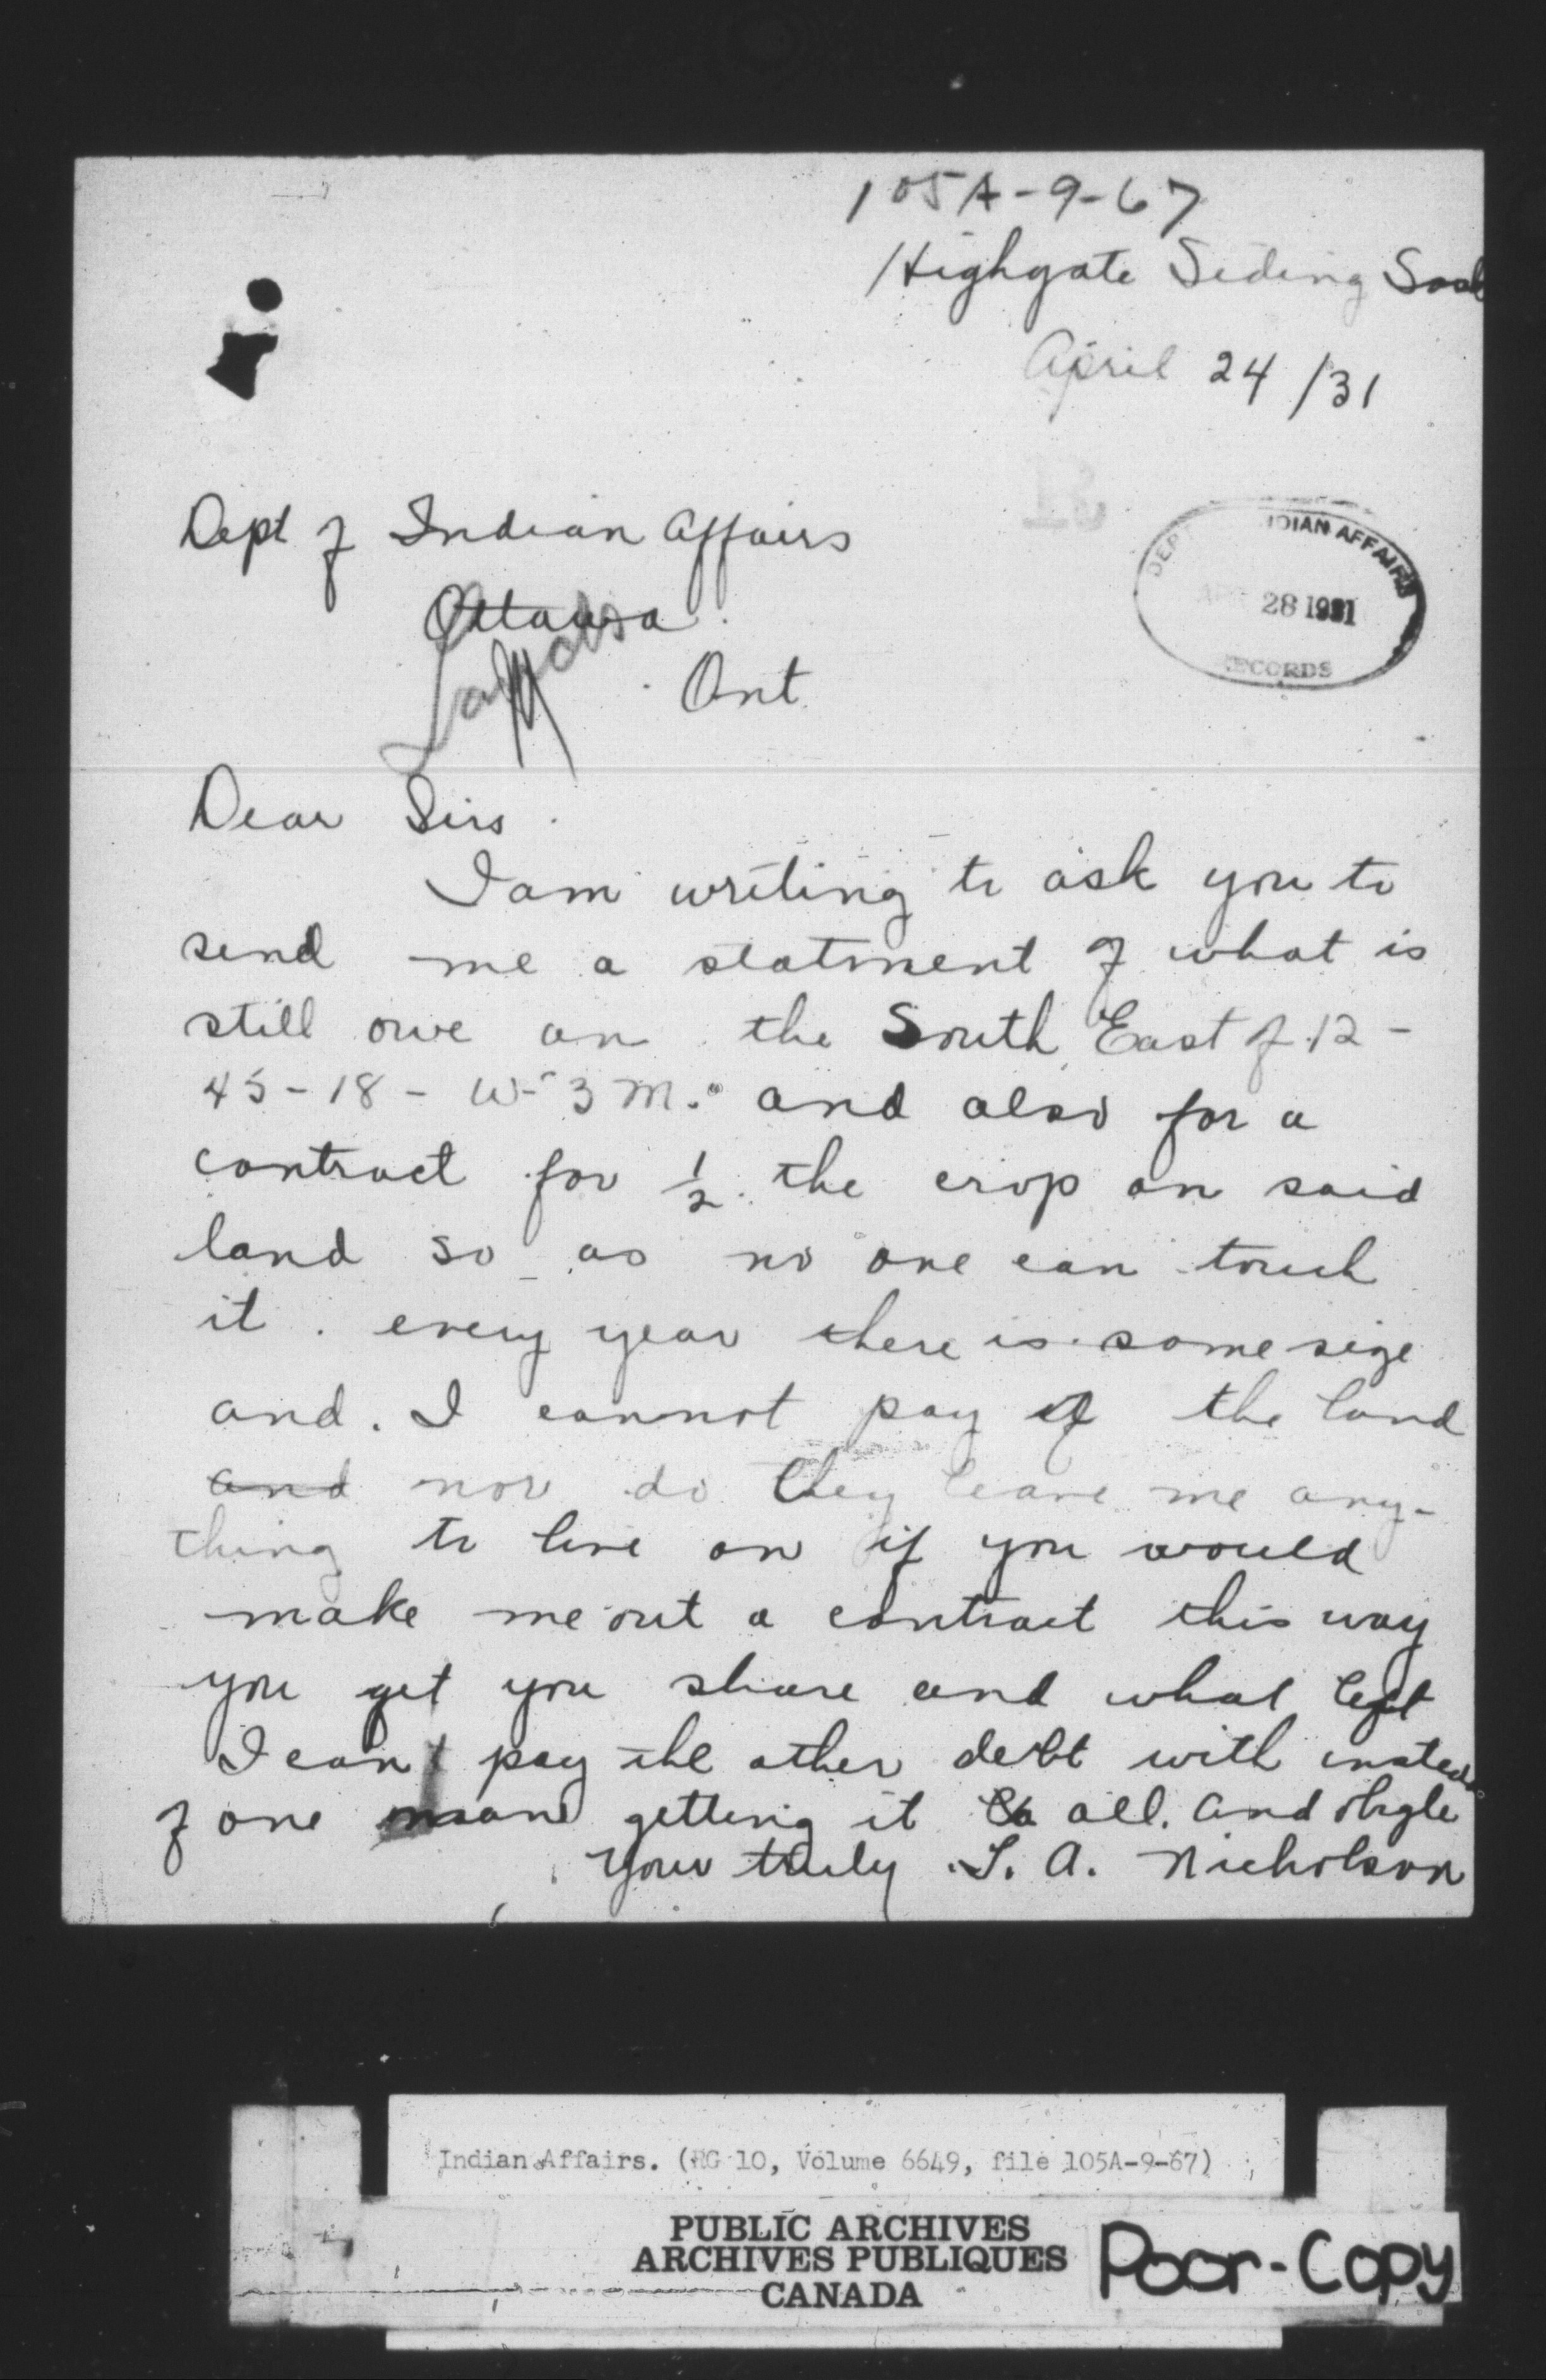 105A-9-67
Highgate Siding Sask
April 24/31
Dept of Indian Affairs
Ottawa.
Ont.
DEP INDIAN AFFAIRS
28 1931
RECORDS
Dear Sirs.
I am writing to ask you to
send me a statment of what is
still owe on the South East of 12-
45-18-W-3M. and also for a
contract for 1/2 the crop on said
land so as no one can touch
it. every year there is some size
and. I cannot pay of the land
and nor do they leave me any-
thing to live on if you would
make me out a contract this way
you get you share and what left
I can pay the other debt with insted
of one man getting it all. and oblige
Your truly S. A. Nicholson
Indian Affairs. (RG 10, Volume 6649, file 105A-9-67)
PUBLIC ARCHIVES
ARCHIVES PUBLIQUES
CANADA
Poor-Copy